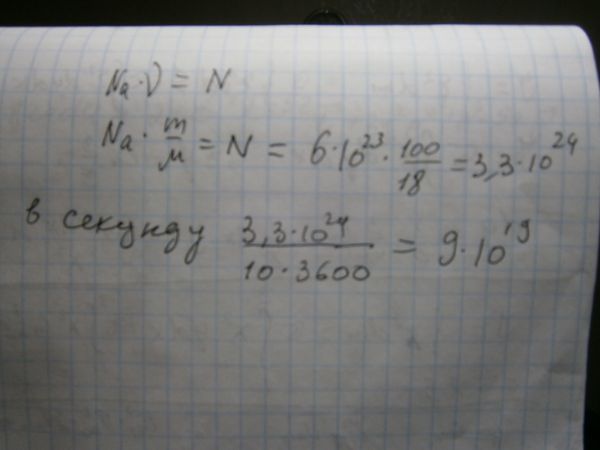 Na · ν = N
Na · m/μ = N = 6·10²³ · 100/18 = 3,3·10²⁴
в секунду 3,3·10²⁴/10·3600 = 9·10¹⁹